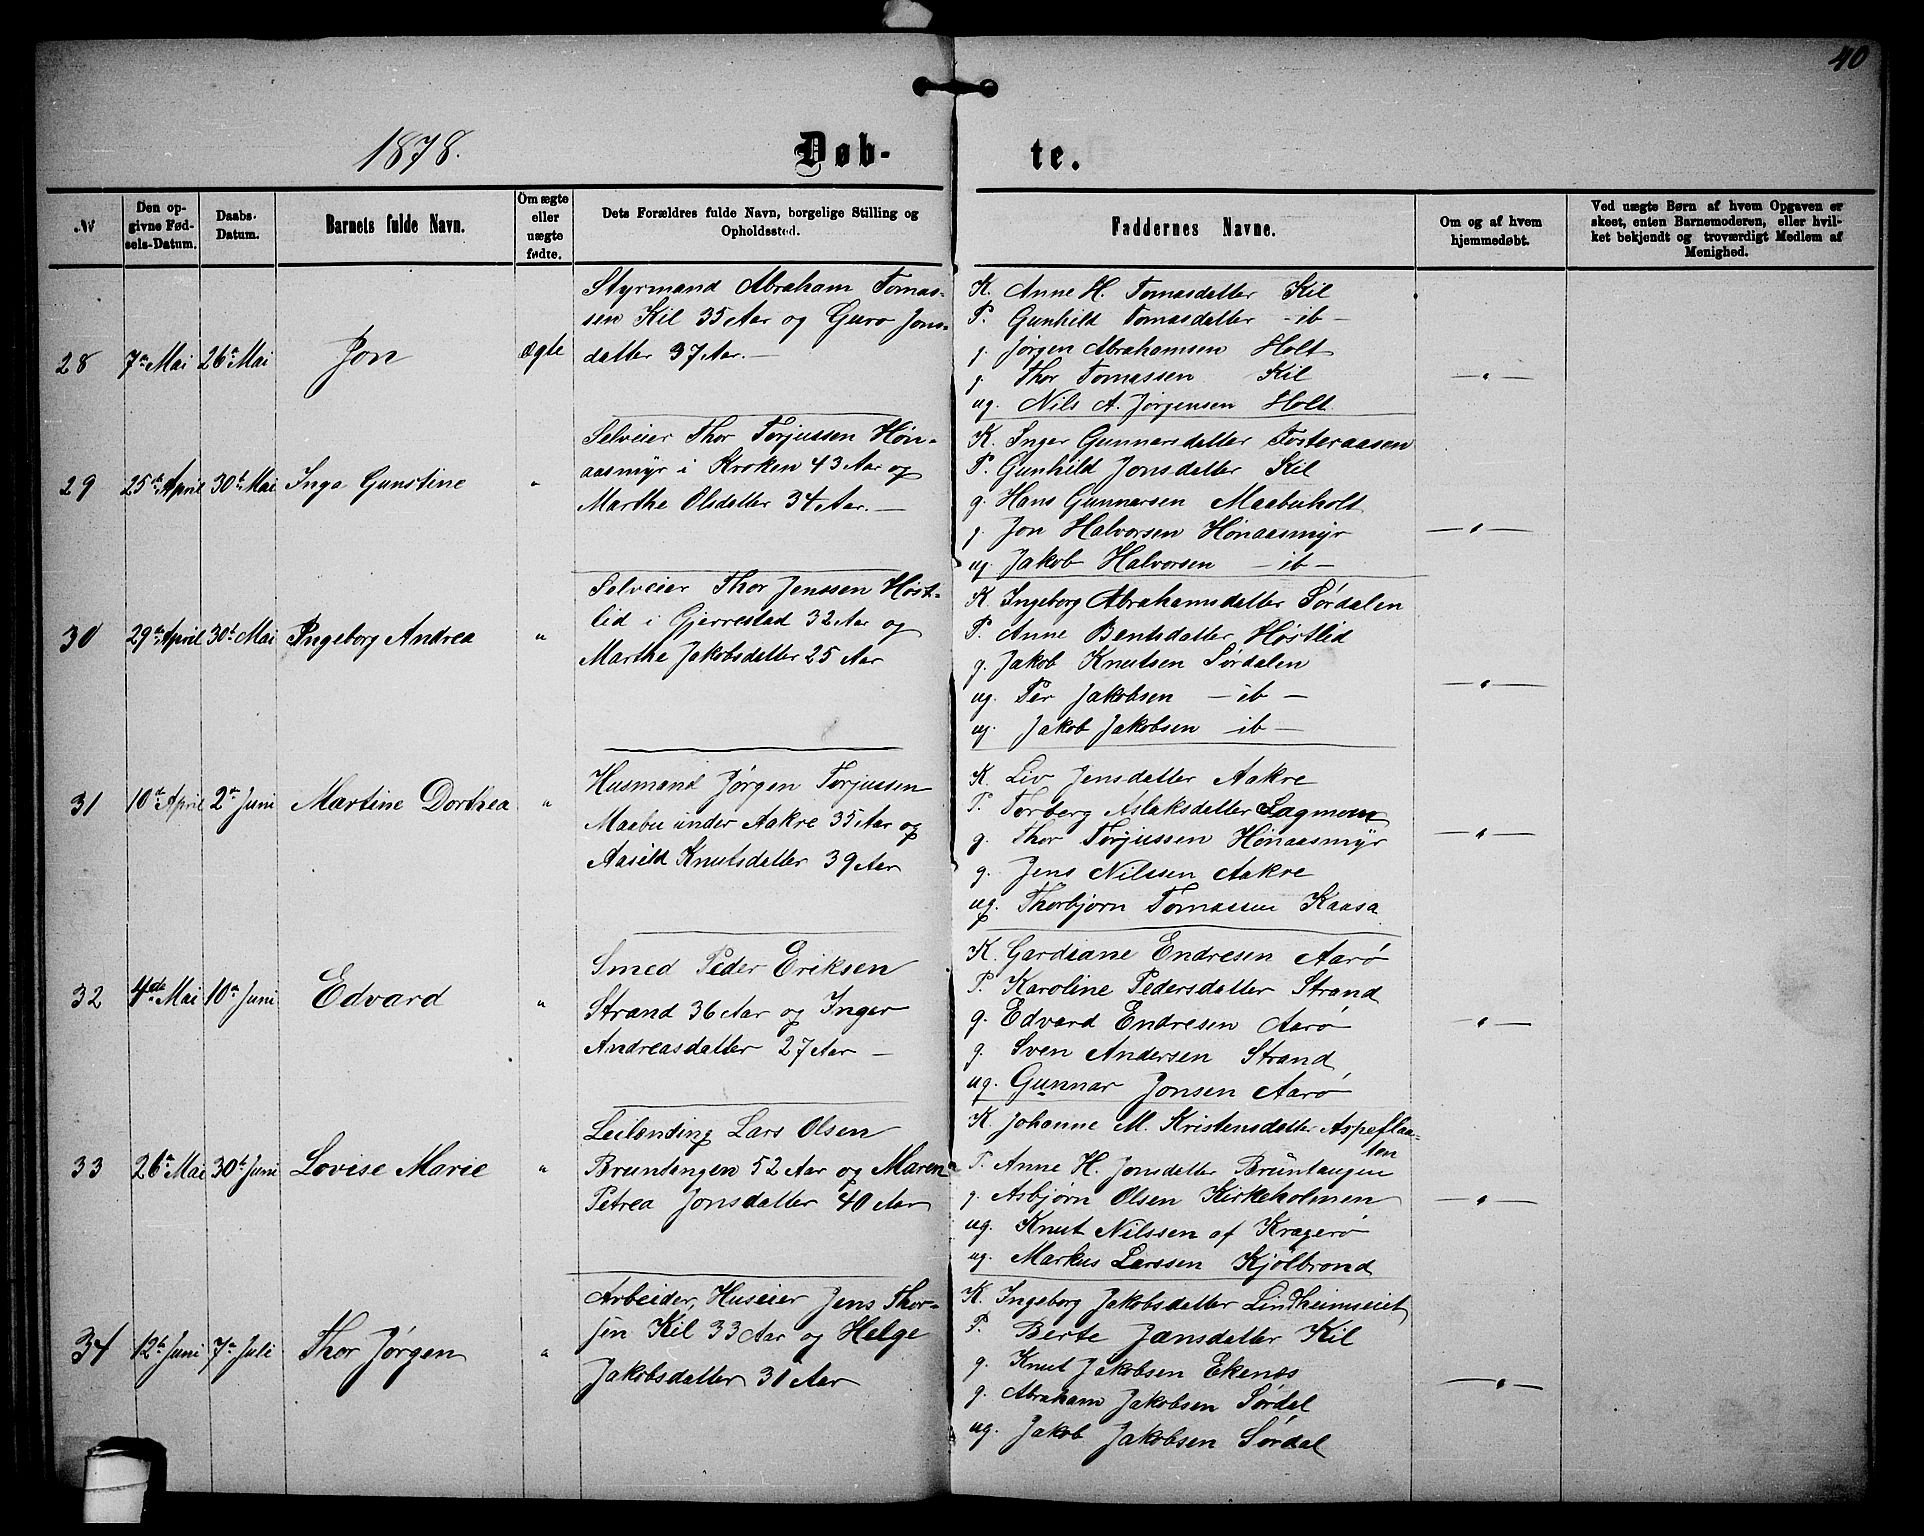 40
1878.
Døb-
te.
№
Den op-
givne Fød-
sels-Datum.
Daabs-
Datum.
Barnets fulde Navn.
Om ægte
eller
uægte
fødte.
Dets Forældres fulde Navn, borgelige Stilling og
Opholdssted.
Faddernes Navne.
Om og af hvem
hjemmedøbt.
Ved uægte Børn af hvem Opgaven er
skeet, enten Barnemoderen, eller hvil-
ket bekjendt og troværdigt Medlem af
Menighed.
28 7de Mai 26de Mai Jon ægte
Styrmand Abraham Tomas-
sen Kil 35 Aar og Guro Jons-
datter 37 Aar. —
K. Anne H. Tomasdatter Kil
P. Gunhild Tomasdatter - ib -
g. Jørgen Abrahamsen Holt
g. Thor Tomassen Kil
ug. Nils A. Jørgensen Holt
— " —
29 25de April 30te Mai Inga Gunstine "
Selveier Thor Torjussen Høn-
aasmyr i Kroken 43 Aar og
Marthe Olsdatter 34 Aar. —
K. Inger Gunnarsdatter Tosteraasen
P. Gunhild Jonsdatter Kil
g. Hans Gunnarsen Maabuholt
g. Jon Halvorsen Hønaasmyr
ug. Jakob Halvorsen - ib -
— " —
30 29de April 30te Mai Ingeborg Andrea "
Selveier Thor Jenssen Høst-
lid i Gjerrestad 32 Aar og
Marthe Jakobsdatter 25 Aar
K. Ingeborg Abrahamsdatter Sørdalen
P. Anne Bentsdatter Hørtlid
g. Jakob Knutsen Sørdalen
ug. Per Jakobsen - ib -
ug. Jakob Jakobsen - ib -
— " —
31 10de April 2den Juni Martine Dorthea "
Husmand Jørgen Torjussen
Maabu under Aakre 35 Aar og
Aasild Knutsdatter 39 Aar
K. Liv Jensdatter Aakre
P. Torberg Aslaksdatter Lagmom
g. Thor Torjussen Hønaasmyr
g. Jens Nilssen Aakre
ug. Thorbjørn Tomassen Kaasa
— " —
32 4de Mai 10de Juni Edvard "
Smed Peder Eriksen
Strand 36 Aar og Inger
Andreasdatter 27 Aar —
K. Gardiane Endresen Aarø
P. Karoline Pedersdatter Strand
g. Edvard Endresen Aarø
g. Sven Andersen Strand
ug. Gunnar Jonsen Aarø
— " —
33 26de Mai 30te Juni Lovise Marie "
Leilending Lars Olsen
Bruntingen 52 Aar og Maren
Petrea Jonsdatter 40 Aar
K. Johanne M. Kristensdatter Aspeflaa-
ten
P. Anne H. Jonsdatter Bruntangen
g. Asbjørn Olsen Kirkeholmen
ug. Knut Nilssen af Kragerø
ug. Markus Larssen Kjølbrønd
— " —
34 12te Juni 7de Juli Thor Jørgen "
Arbeider, Huseier Jens Thor-
sen Kil 33 Aar og Helge
Jakobsdatter 31 Aar
K. Ingeborg Jakobsdatter Lindheimseiet
P. Berte Jænsdatter Kil
g. Knut Jakobsen Ekenæs
g. Abraham Jakobsen Sørdal
ug. Jakob Jakobsen Sørdal
— " —